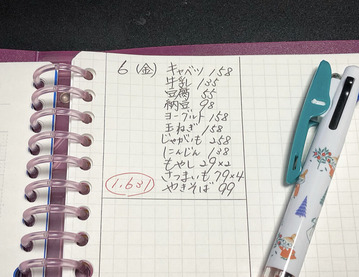 6 (金) キャベツ 158
牛乳 135
豆腐 55
納豆 98
ヨーグルト 158
玉ねぎ 158
じゃがいも 258
にんじん 138
もやし 29×2
さつまいも 79×4
やきそば 99
1,631